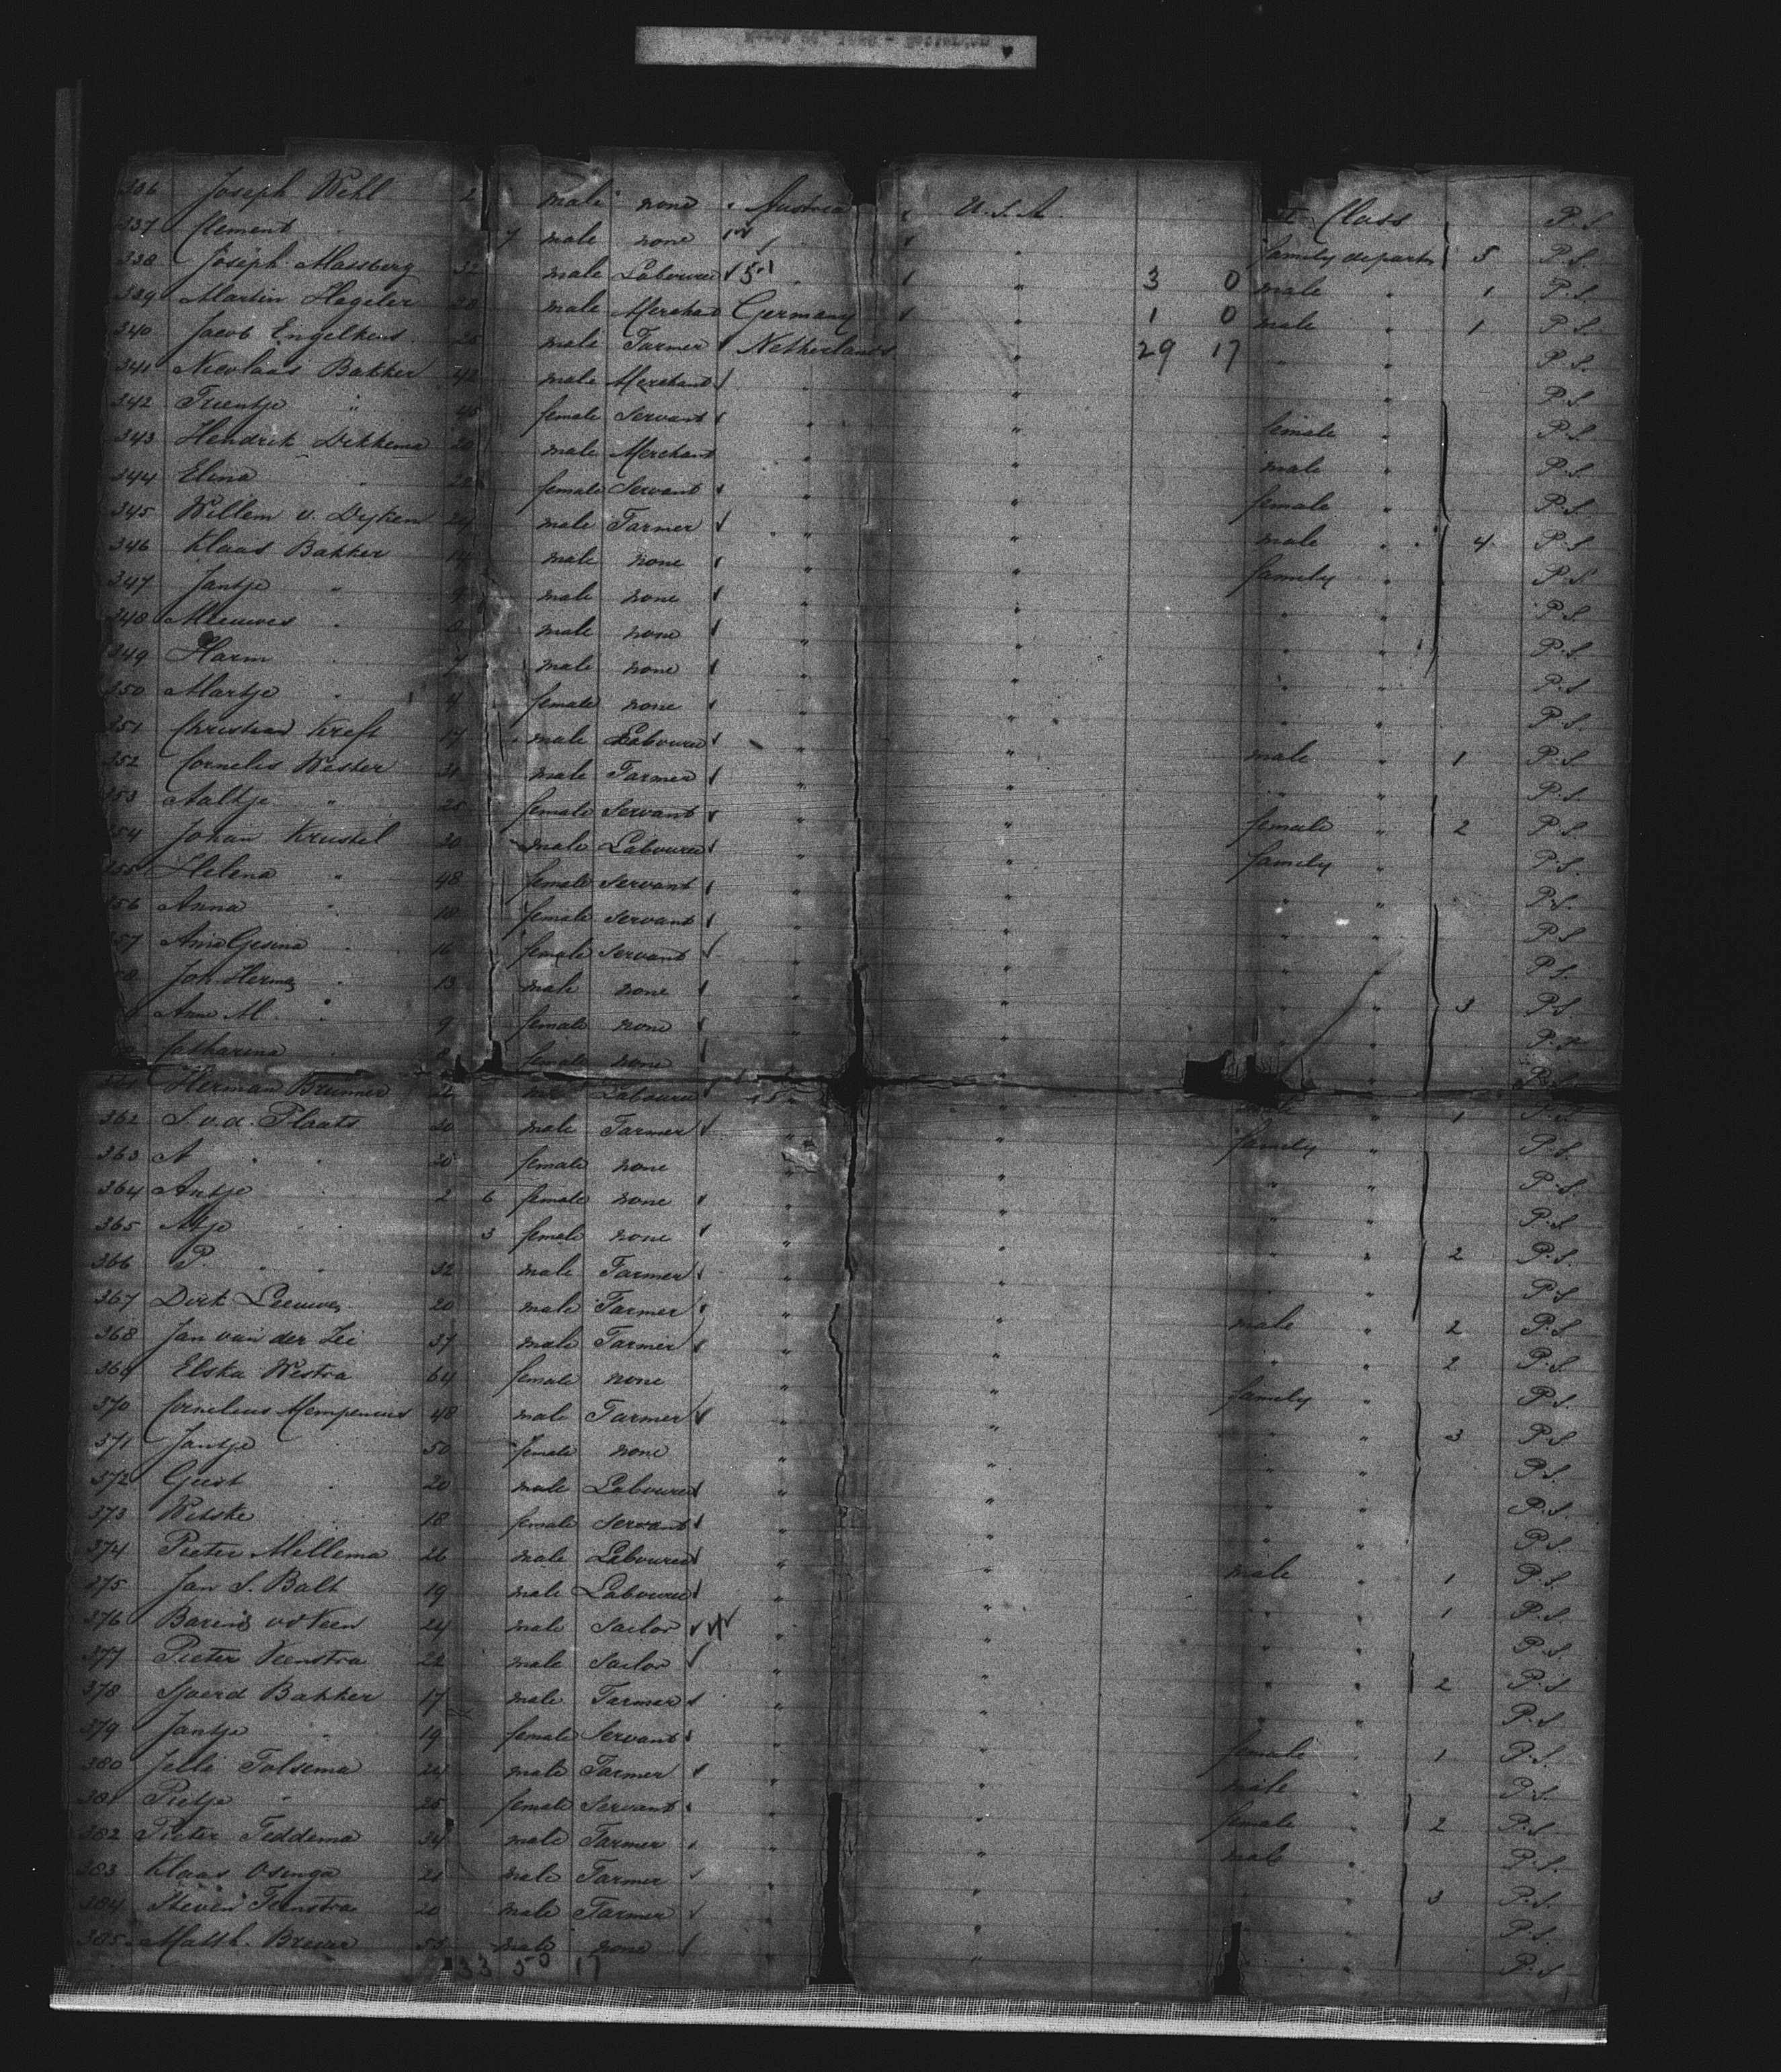 336 Joseph Wehl 2 male none Austria U.S.A. II Class P.S.
337 Clement " 7 male none " " family departm 5 P.S.
338 Joseph Massberg 32 male Labourer 5 " " 3 0 male " 1 P.S.
339 Martin Hegeler 28 male Merchant Germany " 1 0 male " 1 P.S.
340 Jacob Engelkens 25 male Farmer Netherlands " 29 17 " " P.S.
341 Nicolaas Bakker 42 male Merchant " " " P.S.
342 Trientje " 45 female Servant " " female " P.S.
343 Hendrik Dekkema 20 male Merchant " " male " P.S.
344 Elina " female Servant " " female " P.S.
345 Willem v. Dyken 24 male Farmer " " male " 4 P.S.
346 Klaas Bakker 14 male none " " family " P.S.
347 Jantje " 9 male none " " " " P.S.
348 Meuwes " 8 male none " " " " P.S.
349 Harm " 7 male none " " " " P.S.
350 Martje " 4 female none " " " P.S.
351 Christian Kreft 17 male Labourer " " male " 1 P.S.
352 Cornelis Wester 31 male Farmer " " " " P.S.
353 Aaltje " 25 female Servant " " female " 2 P.S.
354 Johan Krustel 30 male Labourer " " family " P.S.
355 Helena " 48 female Servant " " " " P.S.
356 Anna " 18 female Servant " " " " P.S.
357 Ana Gesina " 16 female Servant " " " " P.S.
8 Joh. Herma " 13 male none " " " " 3 P.S.
Anne M. " 9 female none " " " P.S.
Catharina " 8 female none " " " P.S.
361 Herman Brunner 22 Labourer " " " 1 P.S.
362 S. v.d. Plaats 30 male Farmer " " family " P.S.
363 A " " 30 female none " " " " P.S.
364 Antje " 2 6 female none " " " P.S.
365 Atje " 3 female none " " " " 2 P.S.
366 P. " " 32 male Farmer " " " " P.S.
367 Dirk Leeuwe 20 male Farmer " " male " 2 P.S.
368 Jan van der Zei 37 male Farmer " " " " 2 P.S.
369 Elska Westra 64 female none " " family " P.S.
370 Cornelius Mempenius 48 male Farmer " " " " 3 P.S.
371 Jantje " 50 female none " " " " P.S.
372 Geert " 20 male Labourer " " " " P.S.
373 Wetske " 18 female Servant " " " " P.S.
374 Pieter Mellema 26 male Labourer " " male " 1 P.S.
375 Jan S. Balt 19 male Labourer " " " " 1 P.S.
376 Barend vd Veen 24 male Sailor " " " " P.S.
377 Pieter Veenstra 22 male Sailor " " " " 2 P.S.
378 Sjoerd Bakker 17 male Farmer " " " " P.S.
379 Jantje " 19 female Servant " " female " 1 P.S.
380 Jelle Tolsema 24 male Farmer " " male " P.S.
381 Pietje " 25 female Servant " " female " 2 P.S.
382 Pieter Feddema 34 male Farmer " " male " P.S.
383 Klaas Osinga 21 male Farmer " " " " 3 P.S.
384 Steven Feenstra 20 male Farmer " " " " P.S.
385 Matth. Brewer 55 male none " " " P.S.
33 50 17